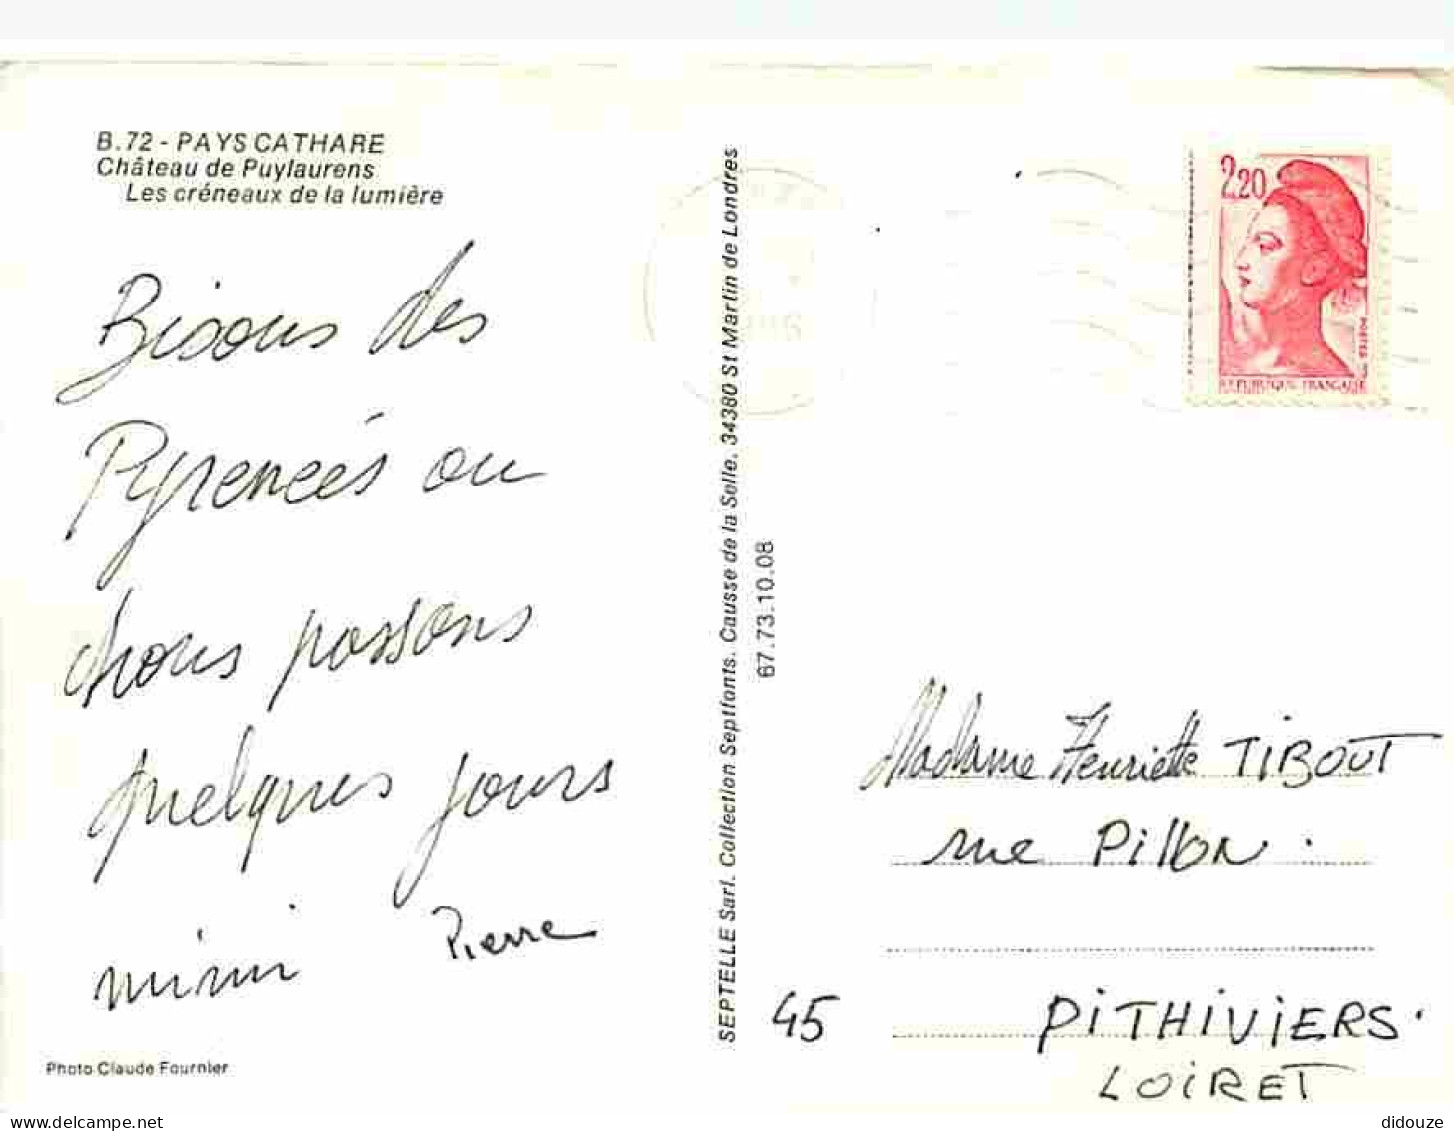 B.72 - PAYS CATHARE
Château de Puylaurens
Les créneaux de la lumière
Bisous des
Pyreneés ou
nous passons
quelques jours
mimi Pierre
Photo Claude Fournier
SEPTELLE Sarl. Collection Septfonts. Causse de la Selle. 34380 St Martin de Londres
67.73.10.08
2,20
POSTES
REPUBLIQUE FRANÇAISE
Madame Henriette TIBOUT
rue Pillon.
45 PITHIVIERS.
LOIRET
delcampe.net
didouze